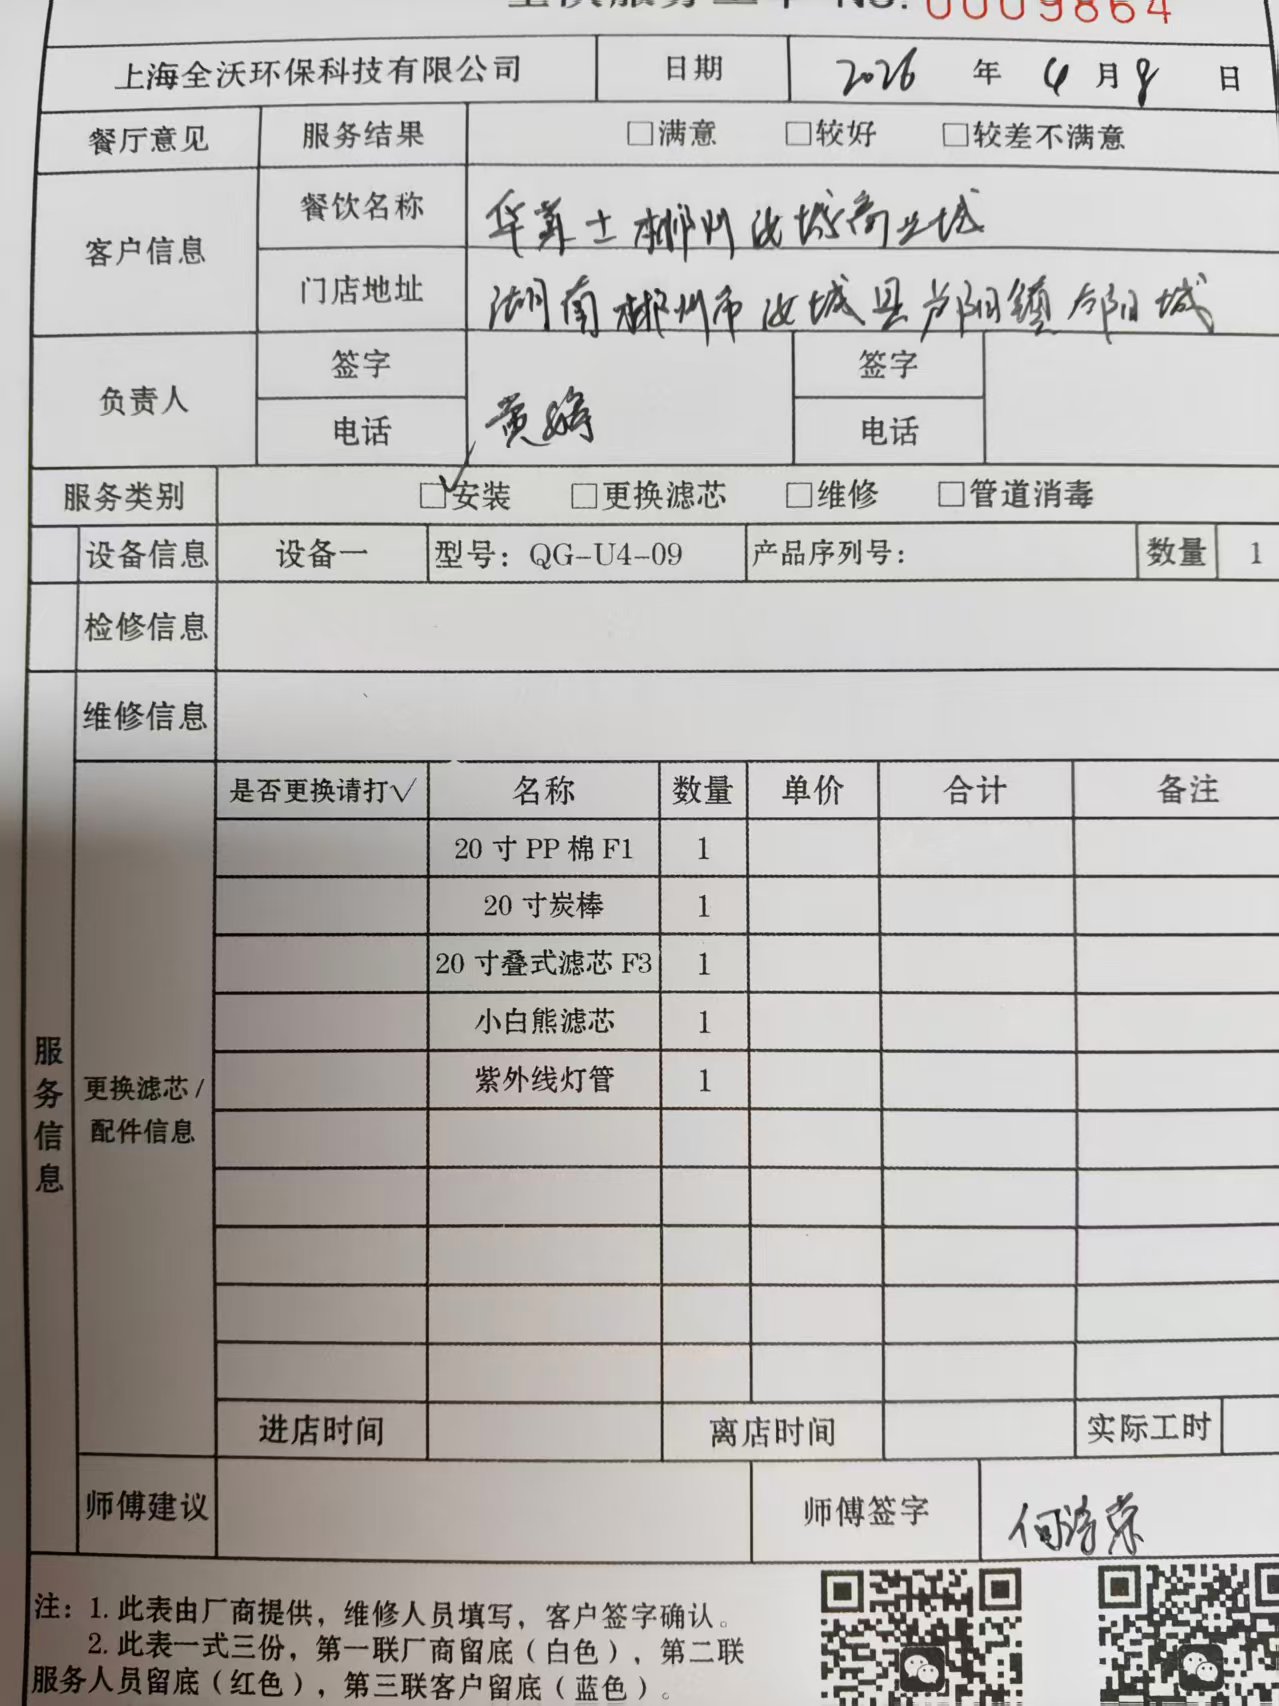 全沃服务工单 No. 0009864
上海全沃环保科技有限公司 日期 2026 年 4 月 8 日
餐厅意见 服务结果 □满意 □较好 □较差不满意
客户信息 餐饮名称 华莱士郴州汝城商业城
门店地址 湖南郴州市汝城县卢阳镇 城
负责人 签字 签字
电话 黄 电话
服务类别 □✓安装 □更换滤芯 □维修 □管道消毒
设备信息 设备一 型号：QG-U4-09 产品序列号： 数量 1
检修信息
维修信息
是否更换请打√ 名称 数量 单价 合计 备注
20 寸 PP 棉 F1 1
20 寸炭棒 1
20 寸叠式滤芯 F3 1
小白熊滤芯 1
紫外线灯管 1
服务信息
更换滤芯/
配件信息
进店时间 离店时间 实际工时
师傅建议 师傅签字 何 荣
注：1. 此表由厂商提供，维修人员填写，客户签字确认。
2. 此表一式三份，第一联厂商留底（白色），第二联
服务人员留底（红色），第三联客户留底（蓝色）。